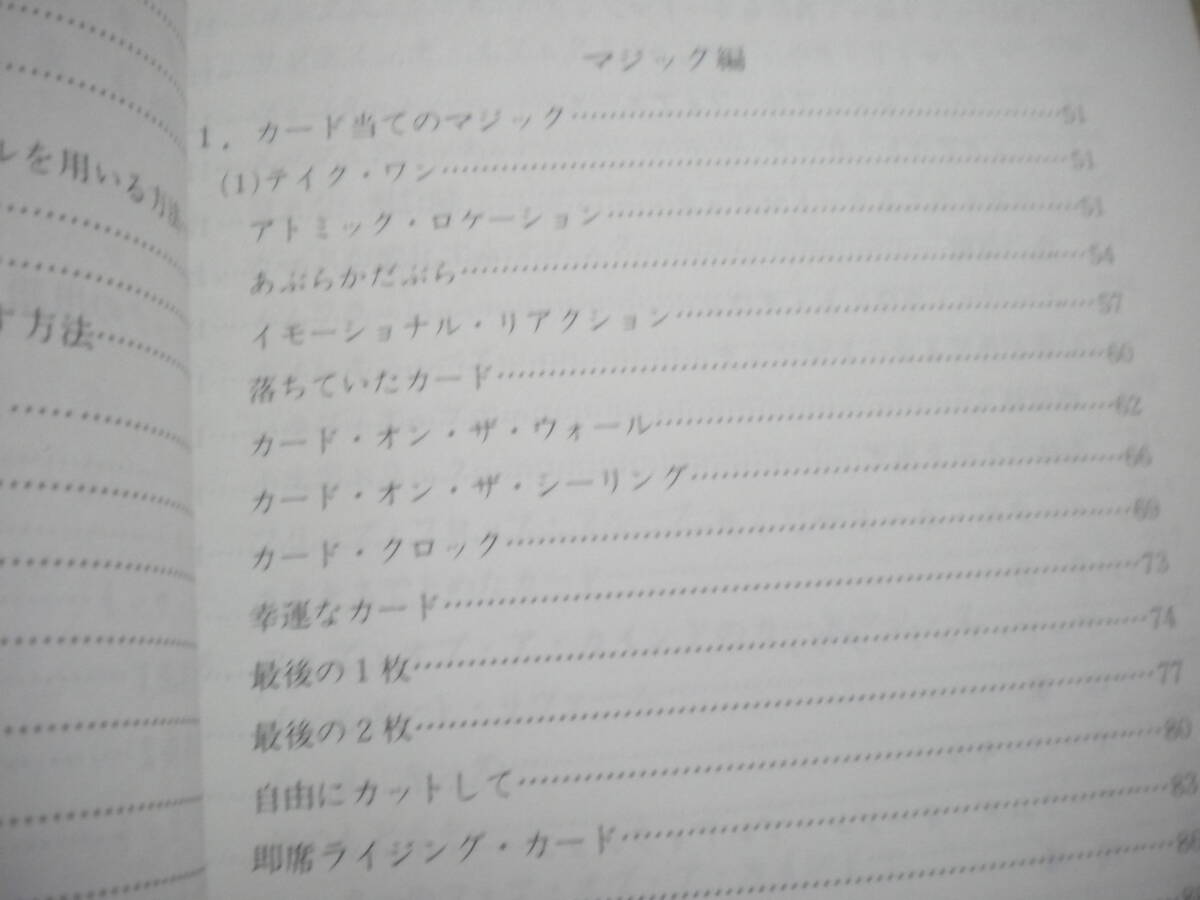 を用いる方法
方法
マジック編
1．カード当てのマジック…………51
(1)テイク・ワン…………51
アトミック・ロケーション…………51
あぶらかだぶら…………54
イモーショナル・リアクション…………57
落ちていたカード…………60
カード・オン・ザ・ウォール…………62
カード・オン・ザ・シーリング…………66
カード・クロック…………69
幸運なカード…………73
最後の1枚…………74
最後の2枚…………77
自由にカットして…………80
即席ライジング・カード…………83
86